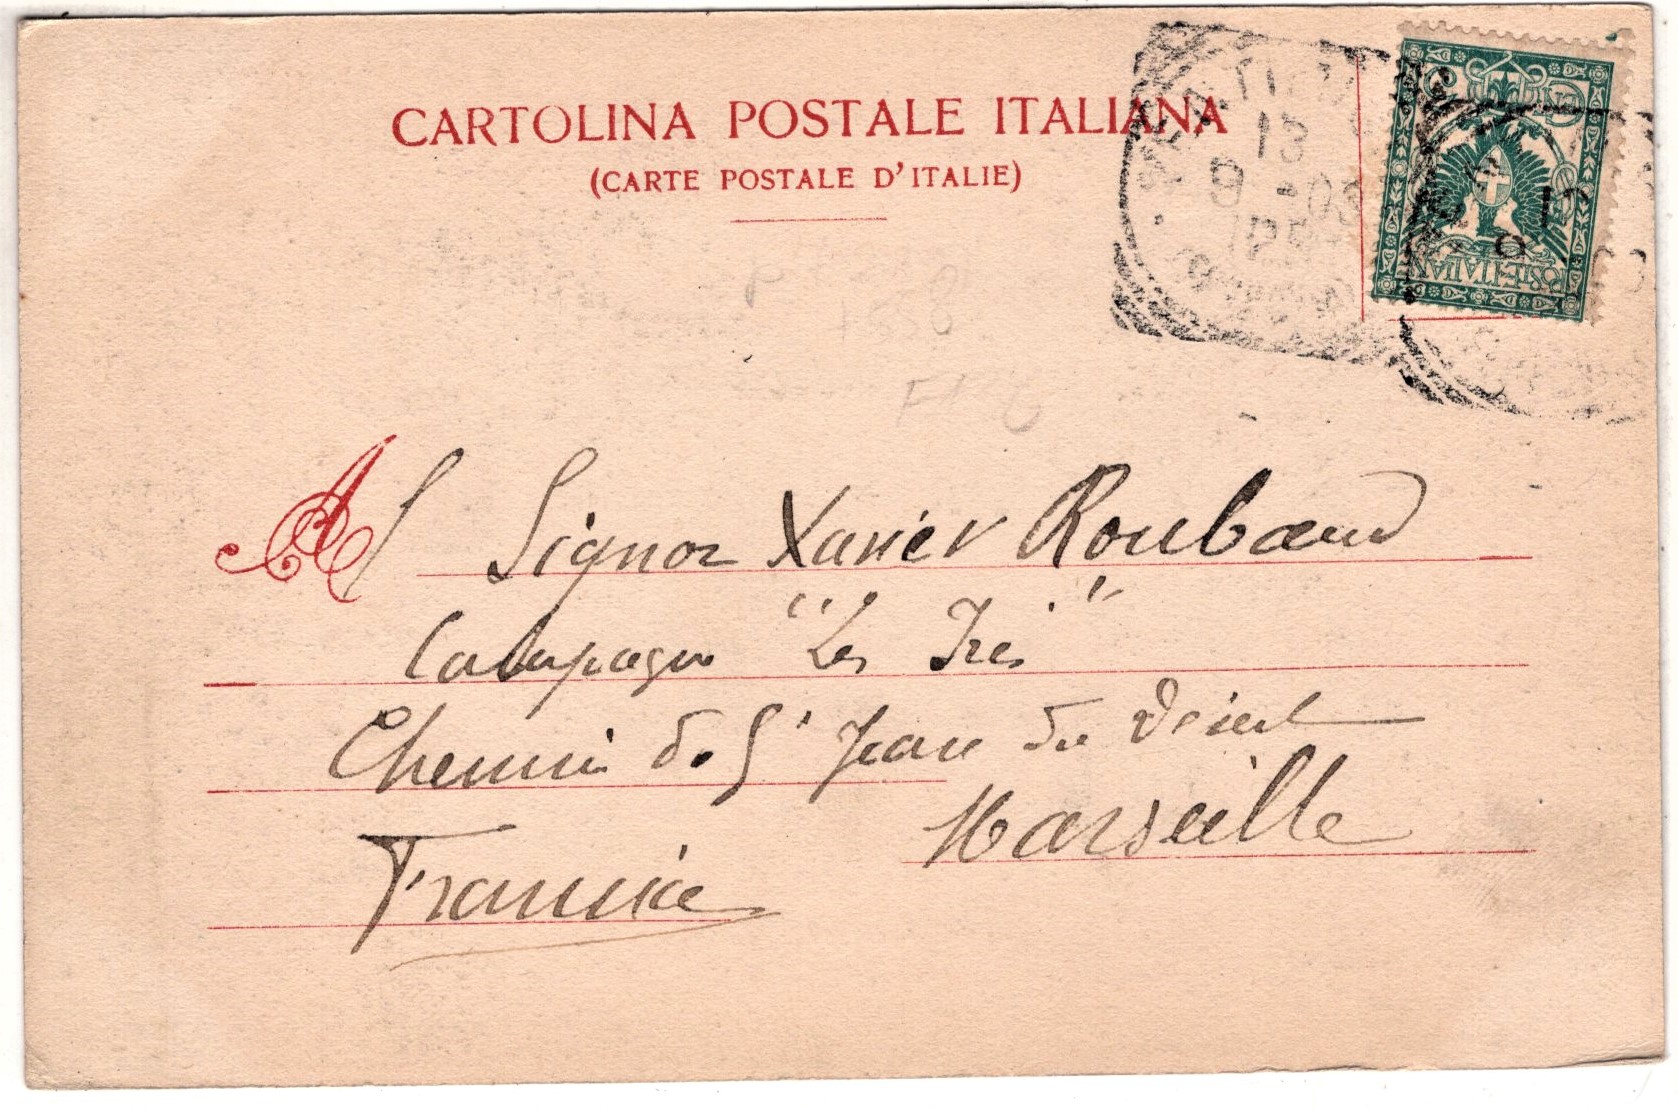 CARTOLINA POSTALE ITALIANA
(CARTE POSTALE D'ITALIE)
13
9 - 03
POSTE ITALIANE
Al Signor Xavier Roubaud
Campagne "Les Iris"
Chemin de St Jean du Désert
Marseille
France